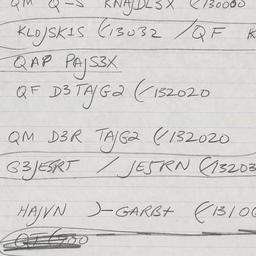 QM Q-S KNAJDL3X (/130000
KLOJSK1S (/13032 /QF K
QAP PAJS3X
QF D3TAJG2 (/132020
QM D3R TAJG2 (/132020
G3JESRT / JESRN (/13203
HAJVN )-GARB+ (/1310